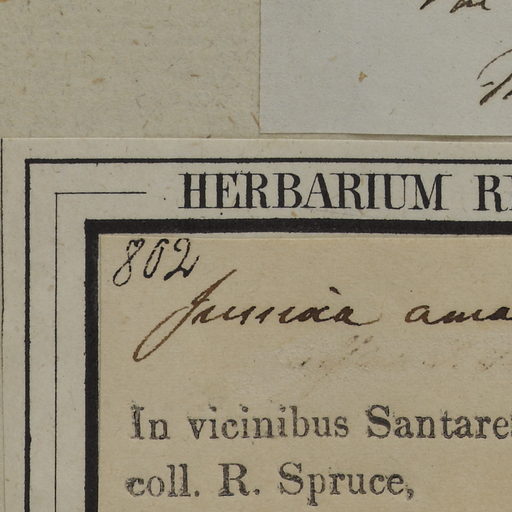 HERBARIUM
802
Jussiaea ama
In vicinibus Santare
coll. R. Spruce,